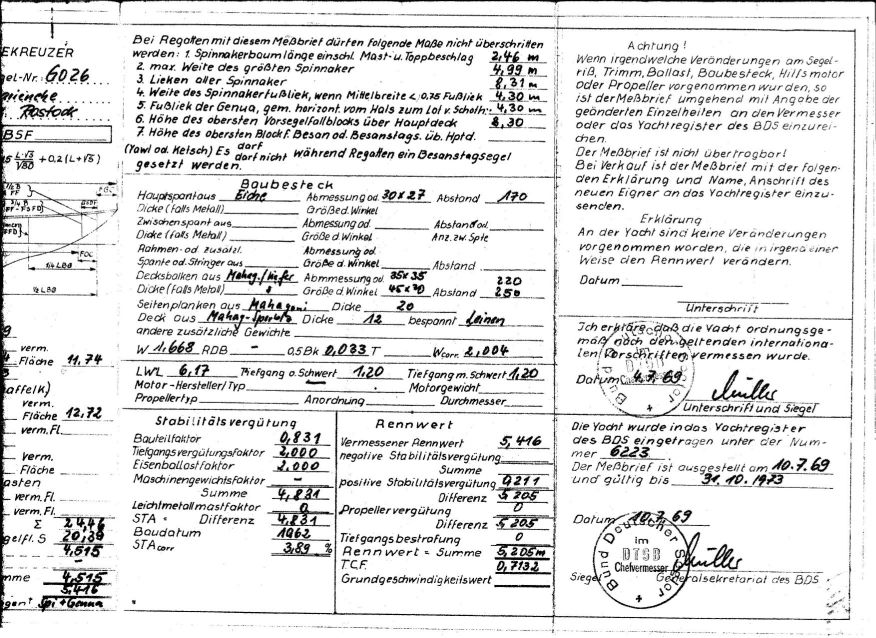 EKREUZER
gel-Nr. GO26
Rostock
BSF
+ 0,2 (L+√S)
¼ LBG
½ LBG
FOC
verm.
Fläche 11,74
affel(K)
verm.
Fläche 12,72
verm. Fl.
Verm.
Fläche
asten
verm. Fl.
verm. Fl.
Σ 24,46
gelfl. S 20,39
4,515
mme 4,515
5,416
Spi + Genua
Bei Regatten mit diesem Meßbrief dürfen folgende Maße nicht überschritten
werden: 1. Spinnakerbaumlänge einschl. Mast- u. Toppbeschlag 2,46 m
2. max. Weite des größten Spinnaker 4,99 m
3. Lieken aller Spinnaker 8,31 m
4. Weite des Spinnakerfußliek, wenn Mittelbreite < 0,75 Fußliek 4,30 m
5. Fußliek der Genua, gem. horizont. vom Hals zum Lot v. Schoth.: 4,30 m
6. Höhe des obersten Vorsegelfallblocks über Hauptdeck 8,30
7. Höhe des obersten Blockf. Besan od. Besanstags. üb. Hptd.
(Yawl od. Ketsch) Es darf / darf nicht während Regatten ein Besanstagsegel
gesetzt werden.
Baubesteck
Hauptspant aus Eiche Abmessung od. 30 x 27 Abstand 170
Dicke (falls Metall) Größe d. Winkel
Zwischenspant aus Abmessung od. Abstand od.
Dicke (falls Metall) Größe d. Winkel Anz. zw. Spte
Rahmen- od zusätzl. Abmessung od.
Spante od. Stringer aus Größe d. Winkel Abstand
Decksbalken aus Mahag./Kiefer Abmmessung od. 35 x 35 220
Dicke (falls Metall) Größe d. Winkel 45 x 70 Abstand 250
Seitenplanken aus Mahagoni Dicke 20
Deck aus Mahag-Sperrholz Dicke 12 bespannt Leinen
andere zusätzliche Gewichte
W 1,668 RDB - 0,5 Bk 0,033 T Wcorr. 2,004
LWL 6,17 Tiefgang o. Schwert 1,20 Tiefgang m. Schwert 1,20
Motor-Hersteller/Typ Motorgewicht
Propellertyp Anordnung Durchmesser
Stabilitätsvergütung
Bauteilfaktor 0,831
Tiefgangsvergütungsfaktor 2,000
Eisenballastfaktor 2,000
Maschinengewichtsfaktor -
Summe 4,831
Leichtmetallmastfaktor 0
STA = Differenz 4,831
Baudatum 1962
STAcorr 3,89 %
Rennwert
Vermessener Rennwert 5,416
negative Stabilitätsvergütung
Summe
positive Stabilitätsvergütung 0,211
Differenz 5,205
Propellervergütung 0
Differenz 5,205
Tiefgangsbestrafung 0
Rennwert = Summe 5,205 m
T.C.F. 0,7132
Grundgeschwindigkeitswert
Achtung!
Wenn irgendwelche Veränderungen am Segel-
riß, Trimm, Ballast, Baubesteck, Hilfsmotor
oder Propeller vorgenommen wurden, so
ist der Meßbrief umgehend mit Angabe der
geänderten Einzelheiten an den Vermesser
oder das Yachtregister des BDS einzurei-
chen.
Der Meßbrief ist nicht übertragbar!
Bei Verkauf ist der Meßbrief mit der folgen-
den Erklärung und Name, Anschrift des
neuen Eigner an das Yachtregister einzu-
senden.
Erklärung
An der Yacht sind keine Veränderungen
vorgenommen worden, die in irgend einer
Weise den Rennwert verändern.
Datum
Unterschrift
Ich erkläre, daß die Yacht ordnungsge-
mäß nach den geltenden internationa-
len Vorschriften vermessen wurde.
Datum 4.7.69 Müller
Unterschrift und Siegel
Die Yacht wurde in das Yachtregister
des BDS eingetragen unter der Num-
mer 6223.
Der Meßbrief ist ausgestellt am 10.7.69
und gültig bis 31.10.1973
Datum 10.7.69
Bund Deutscher Segler
im
DTSB
Chefvermesser
Müller
Siegel Generalsekretariat des BDS